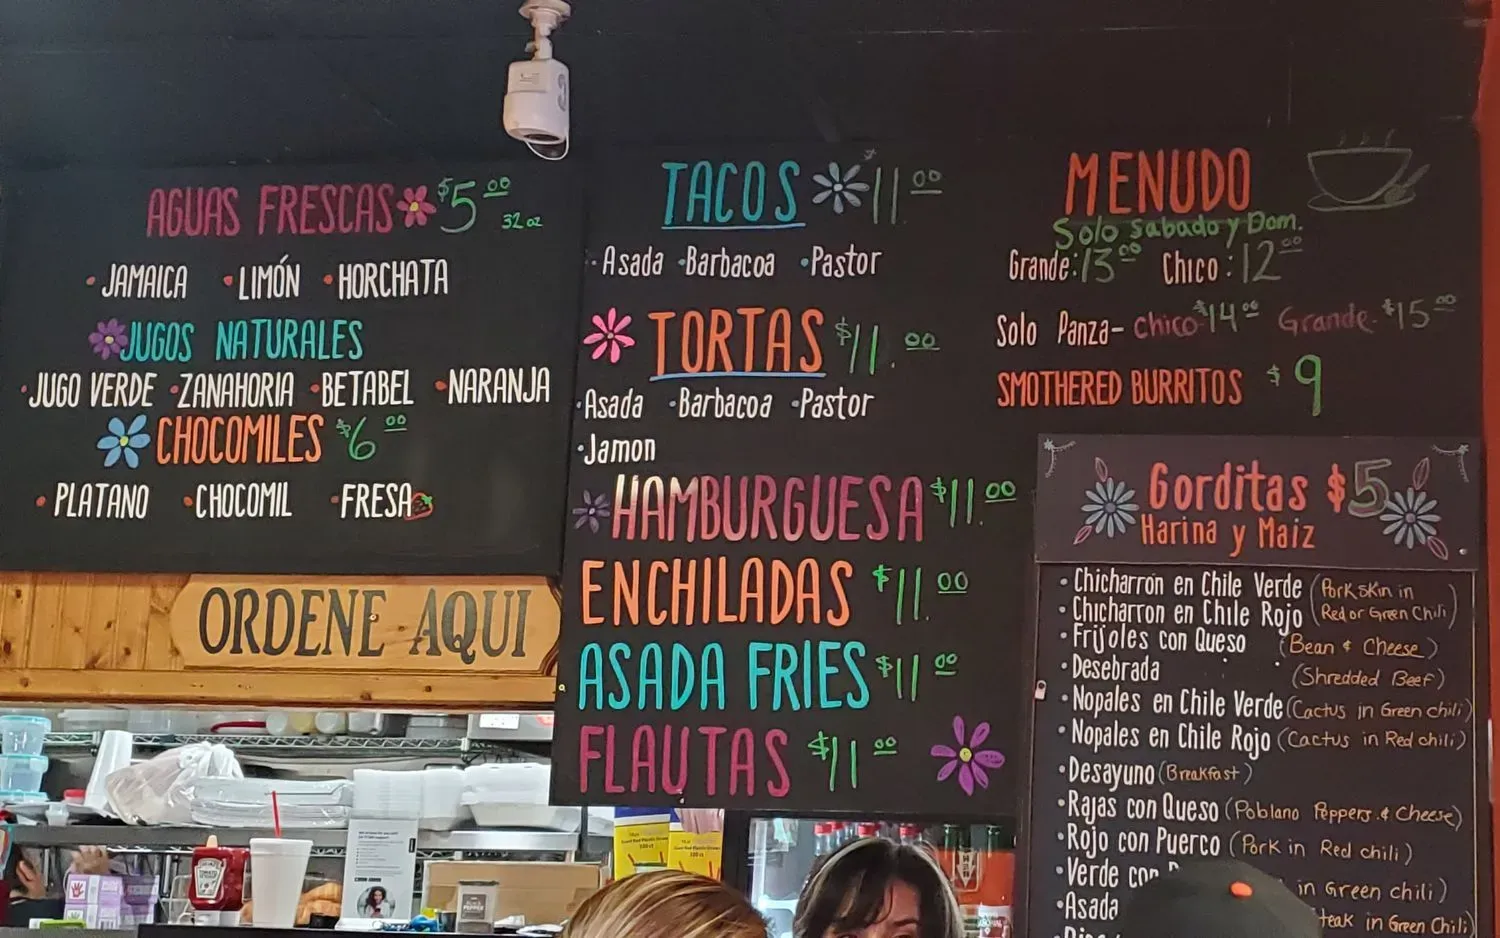 AGUAS FRESCAS $5.00
32 oz
• JAMAICA • LIMÓN • HORCHATA
JUGOS NATURALES
• JUGO VERDE • ZANAHORIA • BETABEL • NARANJA
CHOCOMILES $6.00
• PLATANO • CHOCOMIL • FRESA
ORDENE AQUI
TACOS $11.00
• Asada • Barbacoa • Pastor
TORTAS $11.00
• Asada • Barbacoa • Pastor
• Jamon
HAMBURGUESA $11.00
ENCHILADAS $11.00
ASADA FRIES $11.00
FLAUTAS $11.00
MENUDO
Solo Sabado y Dom.
Grande: 13.00 Chico: 12.00
Solo Panza- chico $14.00 Grande- $15.00
SMOTHERED BURRITOS $9
Gorditas $5
Harina y Maiz
• Chicharron en Chile Verde (Pork skin in
• Chicharron en Chile Rojo Red or Green Chili)
• Frijoles con Queso (Bean & Cheese)
• Desebrada (Shredded Beef)
• Nopales en Chile Verde (Cactus in Green chili)
• Nopales en Chile Rojo (Cactus in Red chili)
• Desayuno (Breakfast)
• Rajas con Queso (Poblano Peppers & Cheese)
• Rojo con Puerco (Pork in Red chili)
• Verde con in Green chili)
• Asada in Green Chili)
HEINZ